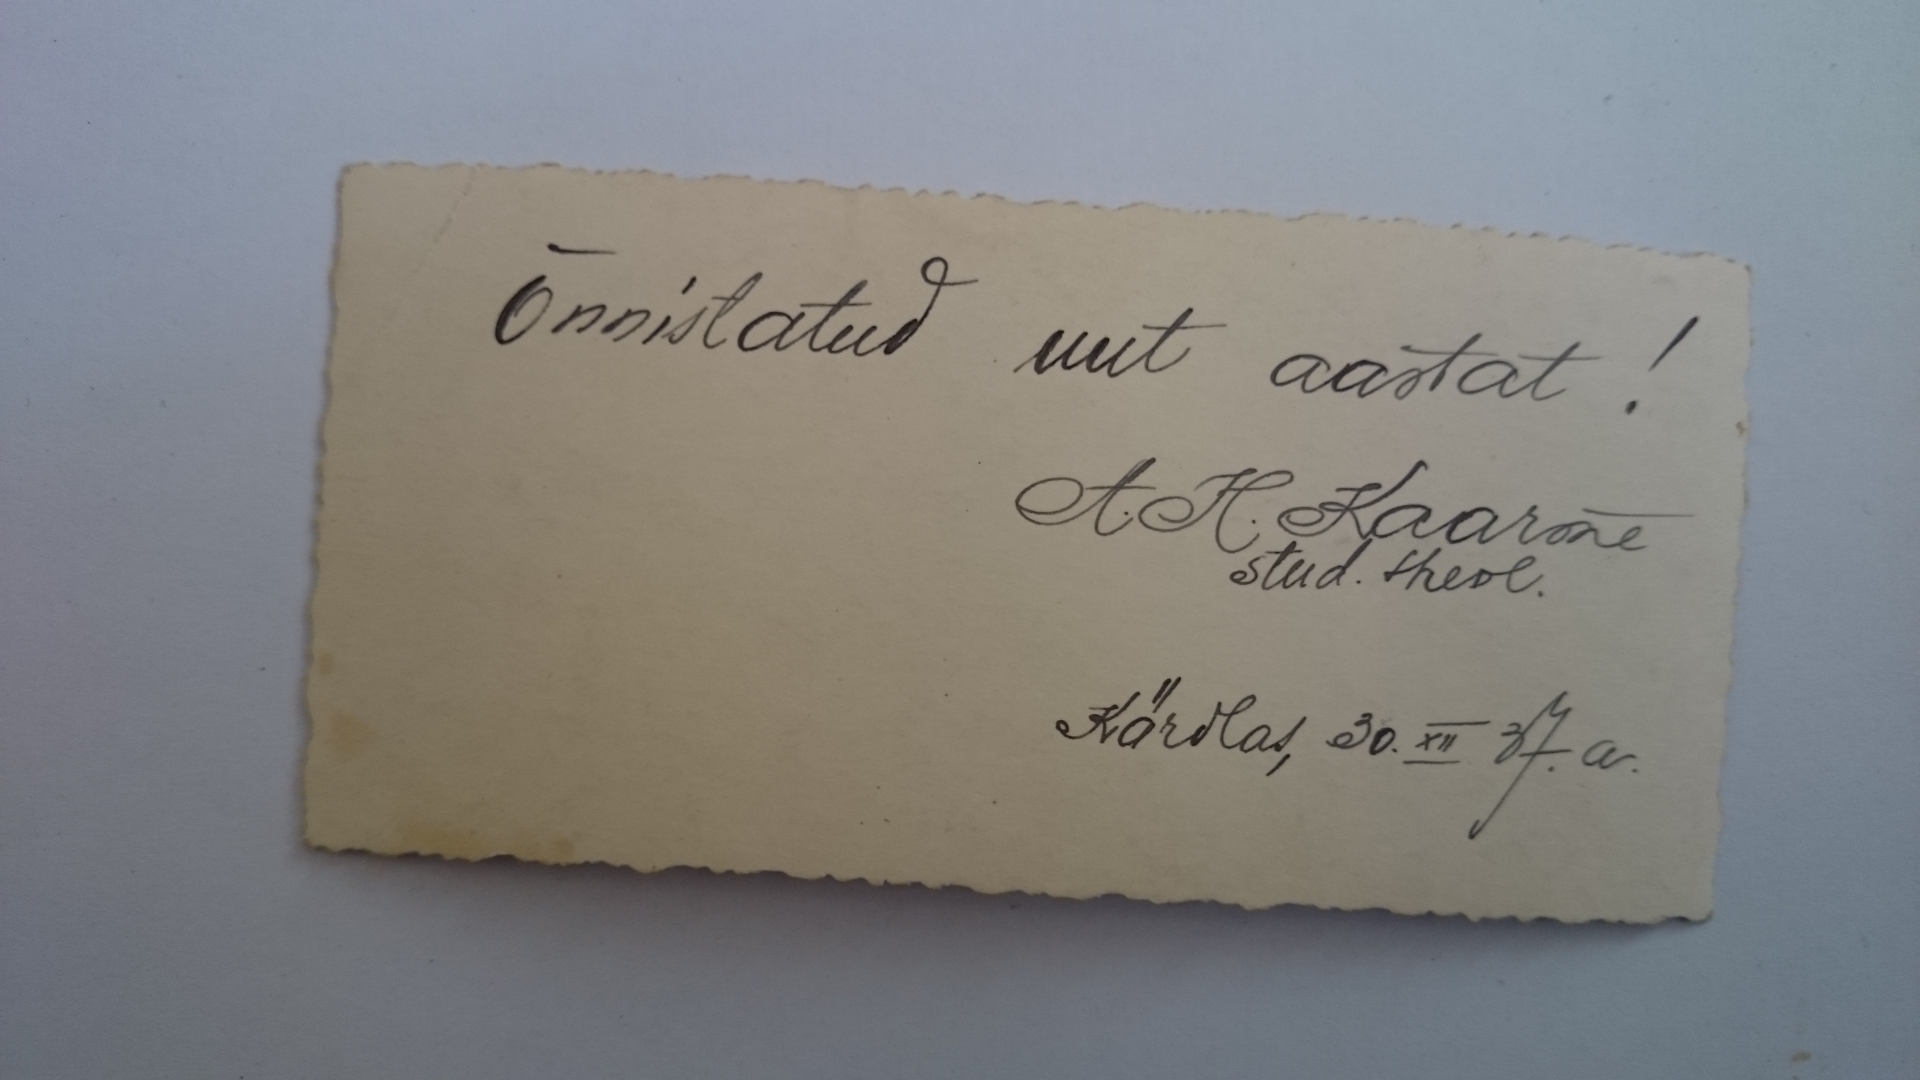 Õnnistatud uut aastat!
A. H. Kaarme
stud. theol.
Kärdlas, 30. XII 37. a.